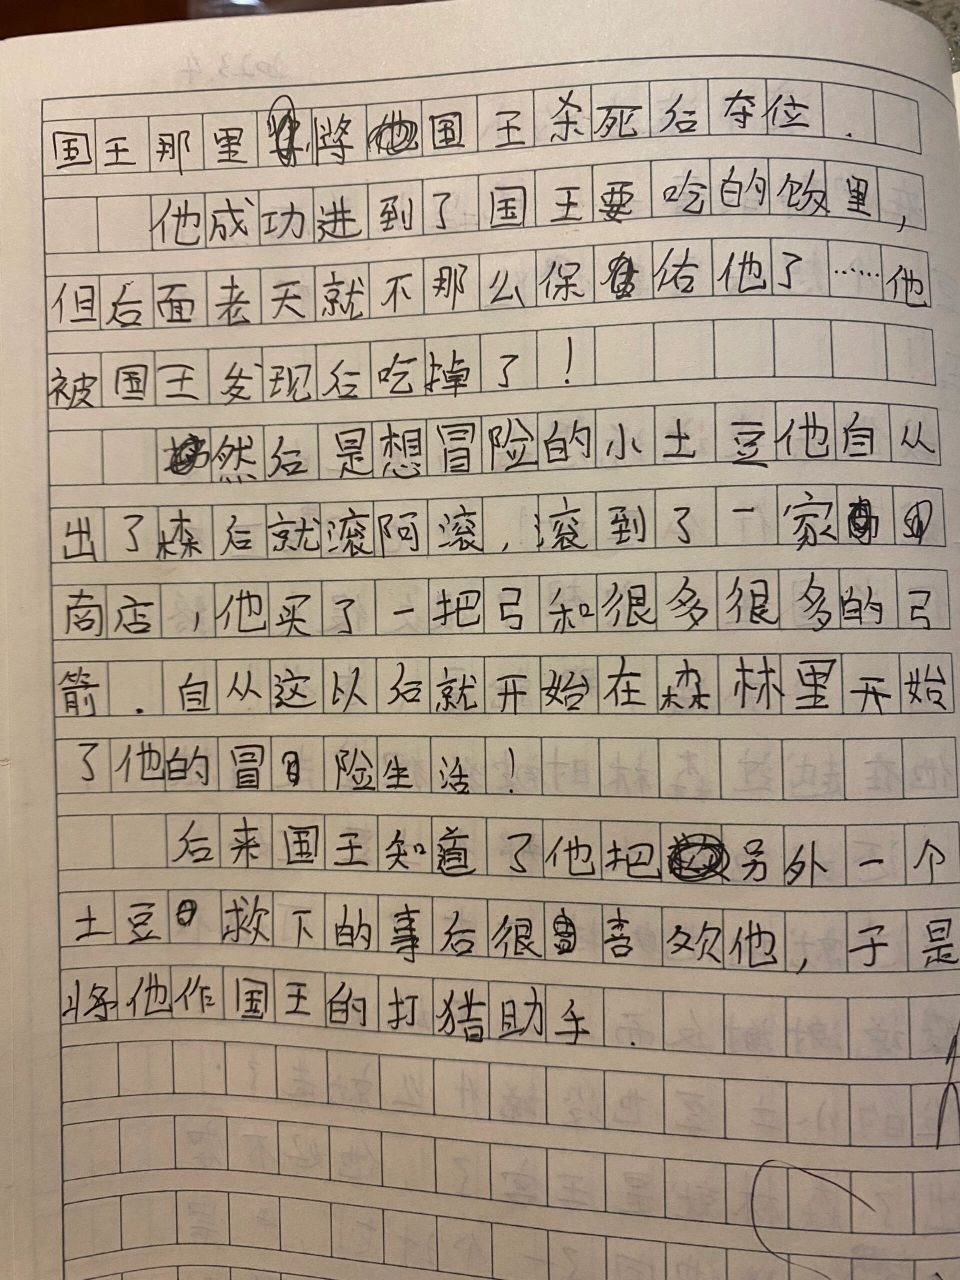 国王那里将国王杀死后夺位.
他成功进到了国王要吃的饭里,
但后面老天就不那么保佑他了……他
被国王发现后吃掉了!
然后是想冒险的小土豆他自从
出了森后就滚阿滚,滚到了一家
商店,他买了一把弓和很多很多的弓
箭.自从这以后就开始在森林里开始
了他的冒险生活!
后来国王知道了他把另外一个
土豆救下的事后很喜欢他,于是
将他作国王的打猎助手.